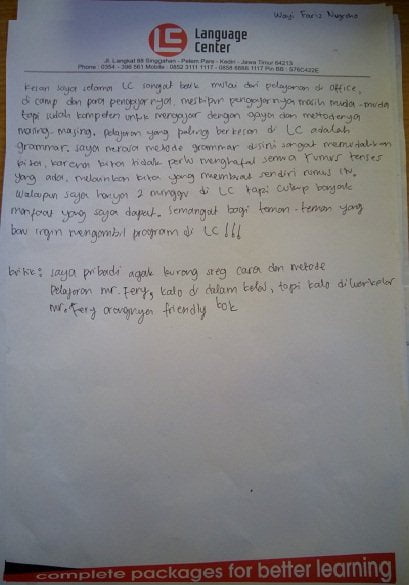 Wayi Fariz Nugroho
LC
Language
Center
Jl. Langkat 88 Singgahan - Pelem Pare - Kediri - Jawa Timur 64213
Phone : 0354 - 396 561 Mobile : 0852 3111 1117 - 0858 6888 1117 Pin BB : S76C422E
Kesan saya selama LC sangat baik mulai dari pelayanan di office,
di camp dan para pengajarnya, meskipun pengajarnya masih muda-muda
tapi sudah kompeten untuk mengajar dengan gaya dan metodenya
masing-masing. pelajaran yang paling berkesan di LC adalah
grammar. saya merasa metode grammar disini sangat memudahkan
kita, karena kita tidak perlu menghafal semua rumus tenses
yang ada, melainkan kita yang membuat sendiri rumus itu.
walaupun saya hanya 2 minggu di LC tapi cukup banyak
manfaat yang saya dapat. Semangat bagi teman-teman yang
baru ingin mengambil program di LC !!!
kritik: saya pribadi agak kurang sreg cara dan metode
pelajaran mr. Fery, kalo di dalam kelas, tapi kalo di luar kelas
mr. Fery orangnya friendly kok
complete packages for better learning